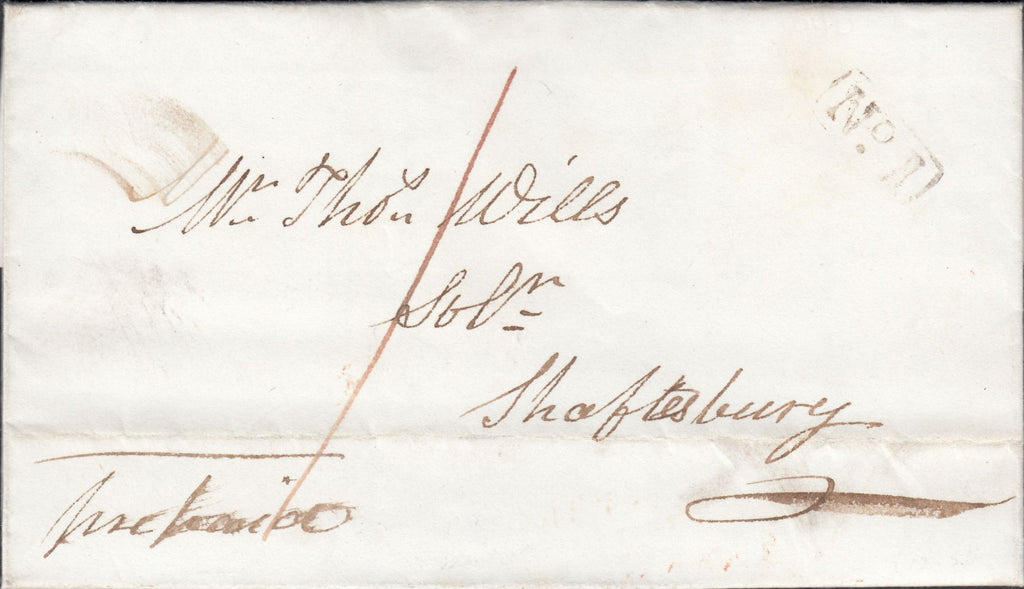 No. 1
Mr. Thos. Wills
Solr.
Shaftesbury
prepaid